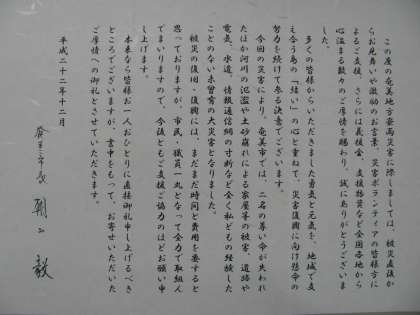 この度の奄美地方豪雨災害に際しましては、被災直後か
らお見舞いや激励のお言葉、災害ボランティアの皆様方に
よるご支援、さらには義援金、支援物資など全国各地から
心温まる数々のご厚情を賜わり、誠にありがとうございま
した。
多くの皆様からいただきました勇気と元気を、地域で支
え合う島の「結い」の心と重ねて、災害復興に向け懸命の
努力を続けて参る決意でございます。
今回の災害により、奄美市では、二名の尊い命が失われ
たほか河川の氾濫や土砂崩れによる家屋等の被害、道路や
電気、水道、情報通信網の寸断など全く私どもの経験した
ことのない未曾有の大災害となりました。
被災の復旧・復興には、まだまだ時間と費用を要すると
思っておりますが、市民・職員一丸となって全力で取組ん
でまいりますので、今後ともご支援ご協力のほどお願い申
し上げます。
本来なら皆様お一人おひとりに直接御礼申し上げるべき
ところでございますが、書中をもって、お寄せいただいた
ご厚情への御礼とさせていただきます。
平成二十二年十二月
奄美市長 朝山 毅